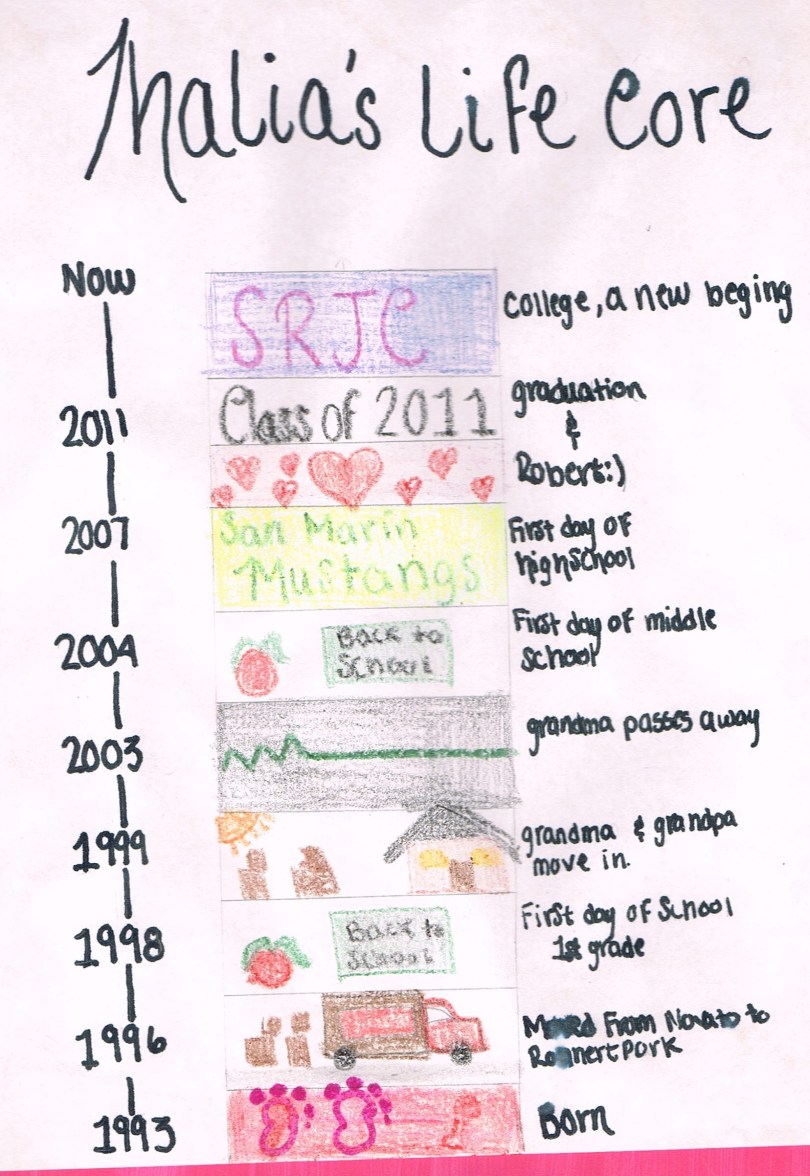 Malia's Life Core
Now
SRJC
College, a new beging
2011
Class of 2011
graduation
&
Robert:)
2007
San Marin
Mustangs
First day of
highschool
2004
Back to
School
First day of middle
school
2003
grandma passes away
1999
grandma & grandpa
move in.
1998
Back to
School
First day of School
1st grade
1996
Moved From Novato to
Rohnert Park
1993
Born